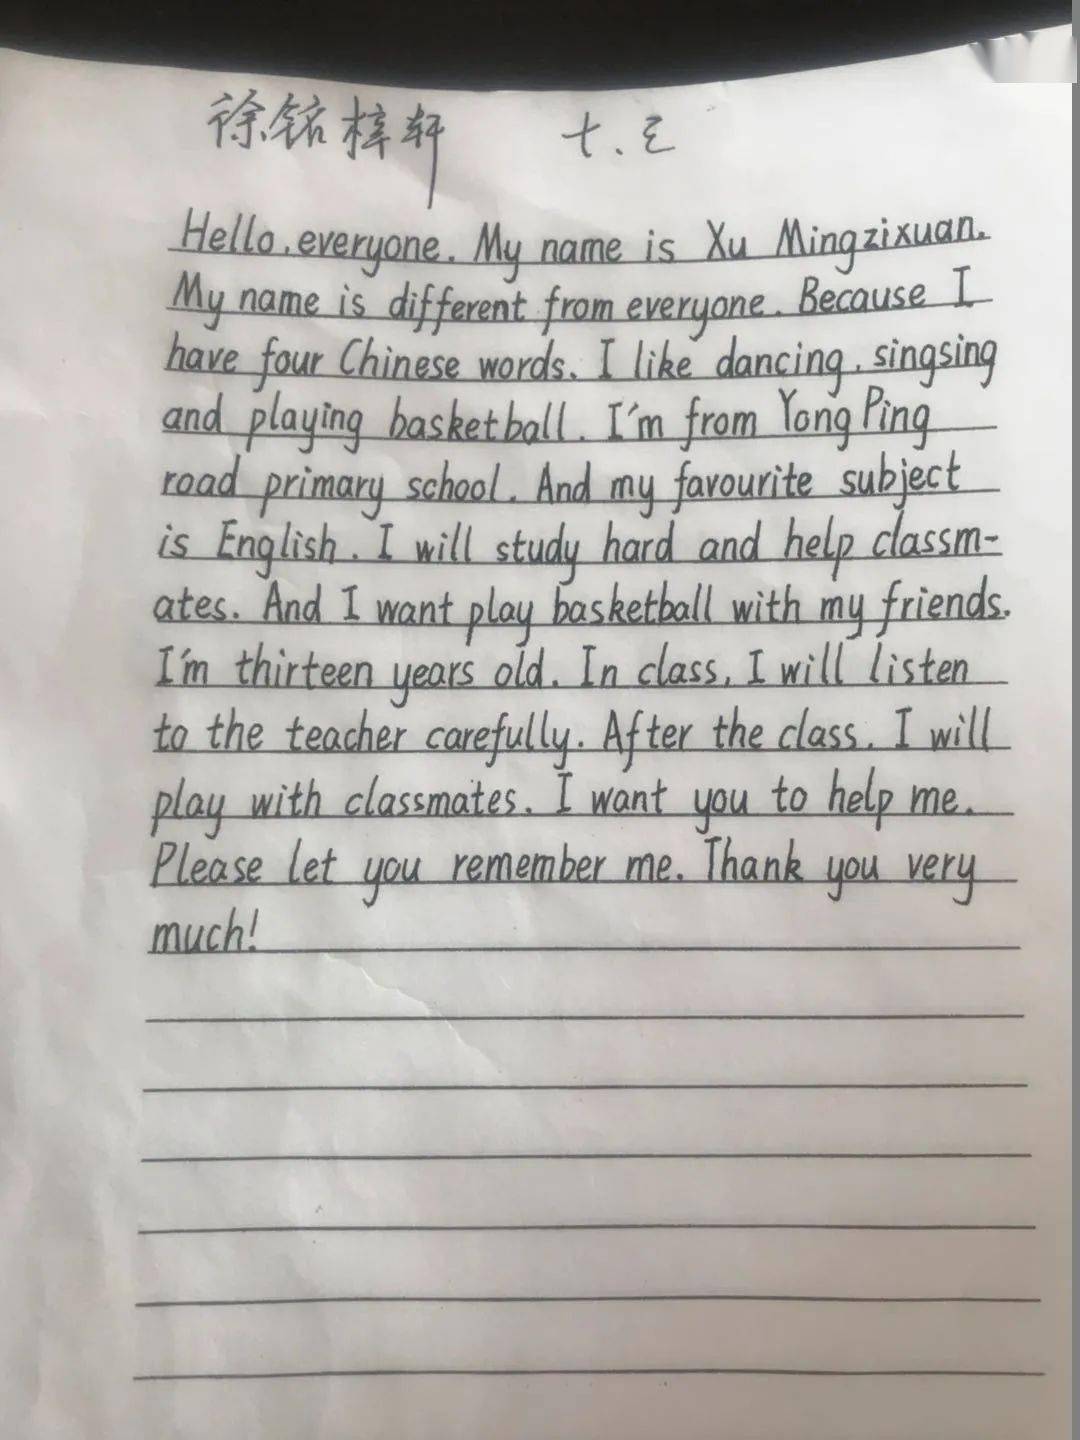 徐铭梓轩 七.三
Hello, everyone. My name is Xu Mingzixuan.
My name is different from everyone. Because I
have four Chinese words. I like dancing, singsing
and playing basketball. I'm from Yong Ping
road primary school. And my favourite subject
is English. I will study hard and help classm-
ates. And I want play basketball with my friends.
I'm thirteen years old. In class, I will listen
to the teacher carefully. After the class. I will
play with classmates. I want you to help me.
Please let you remember me. Thank you very
much!